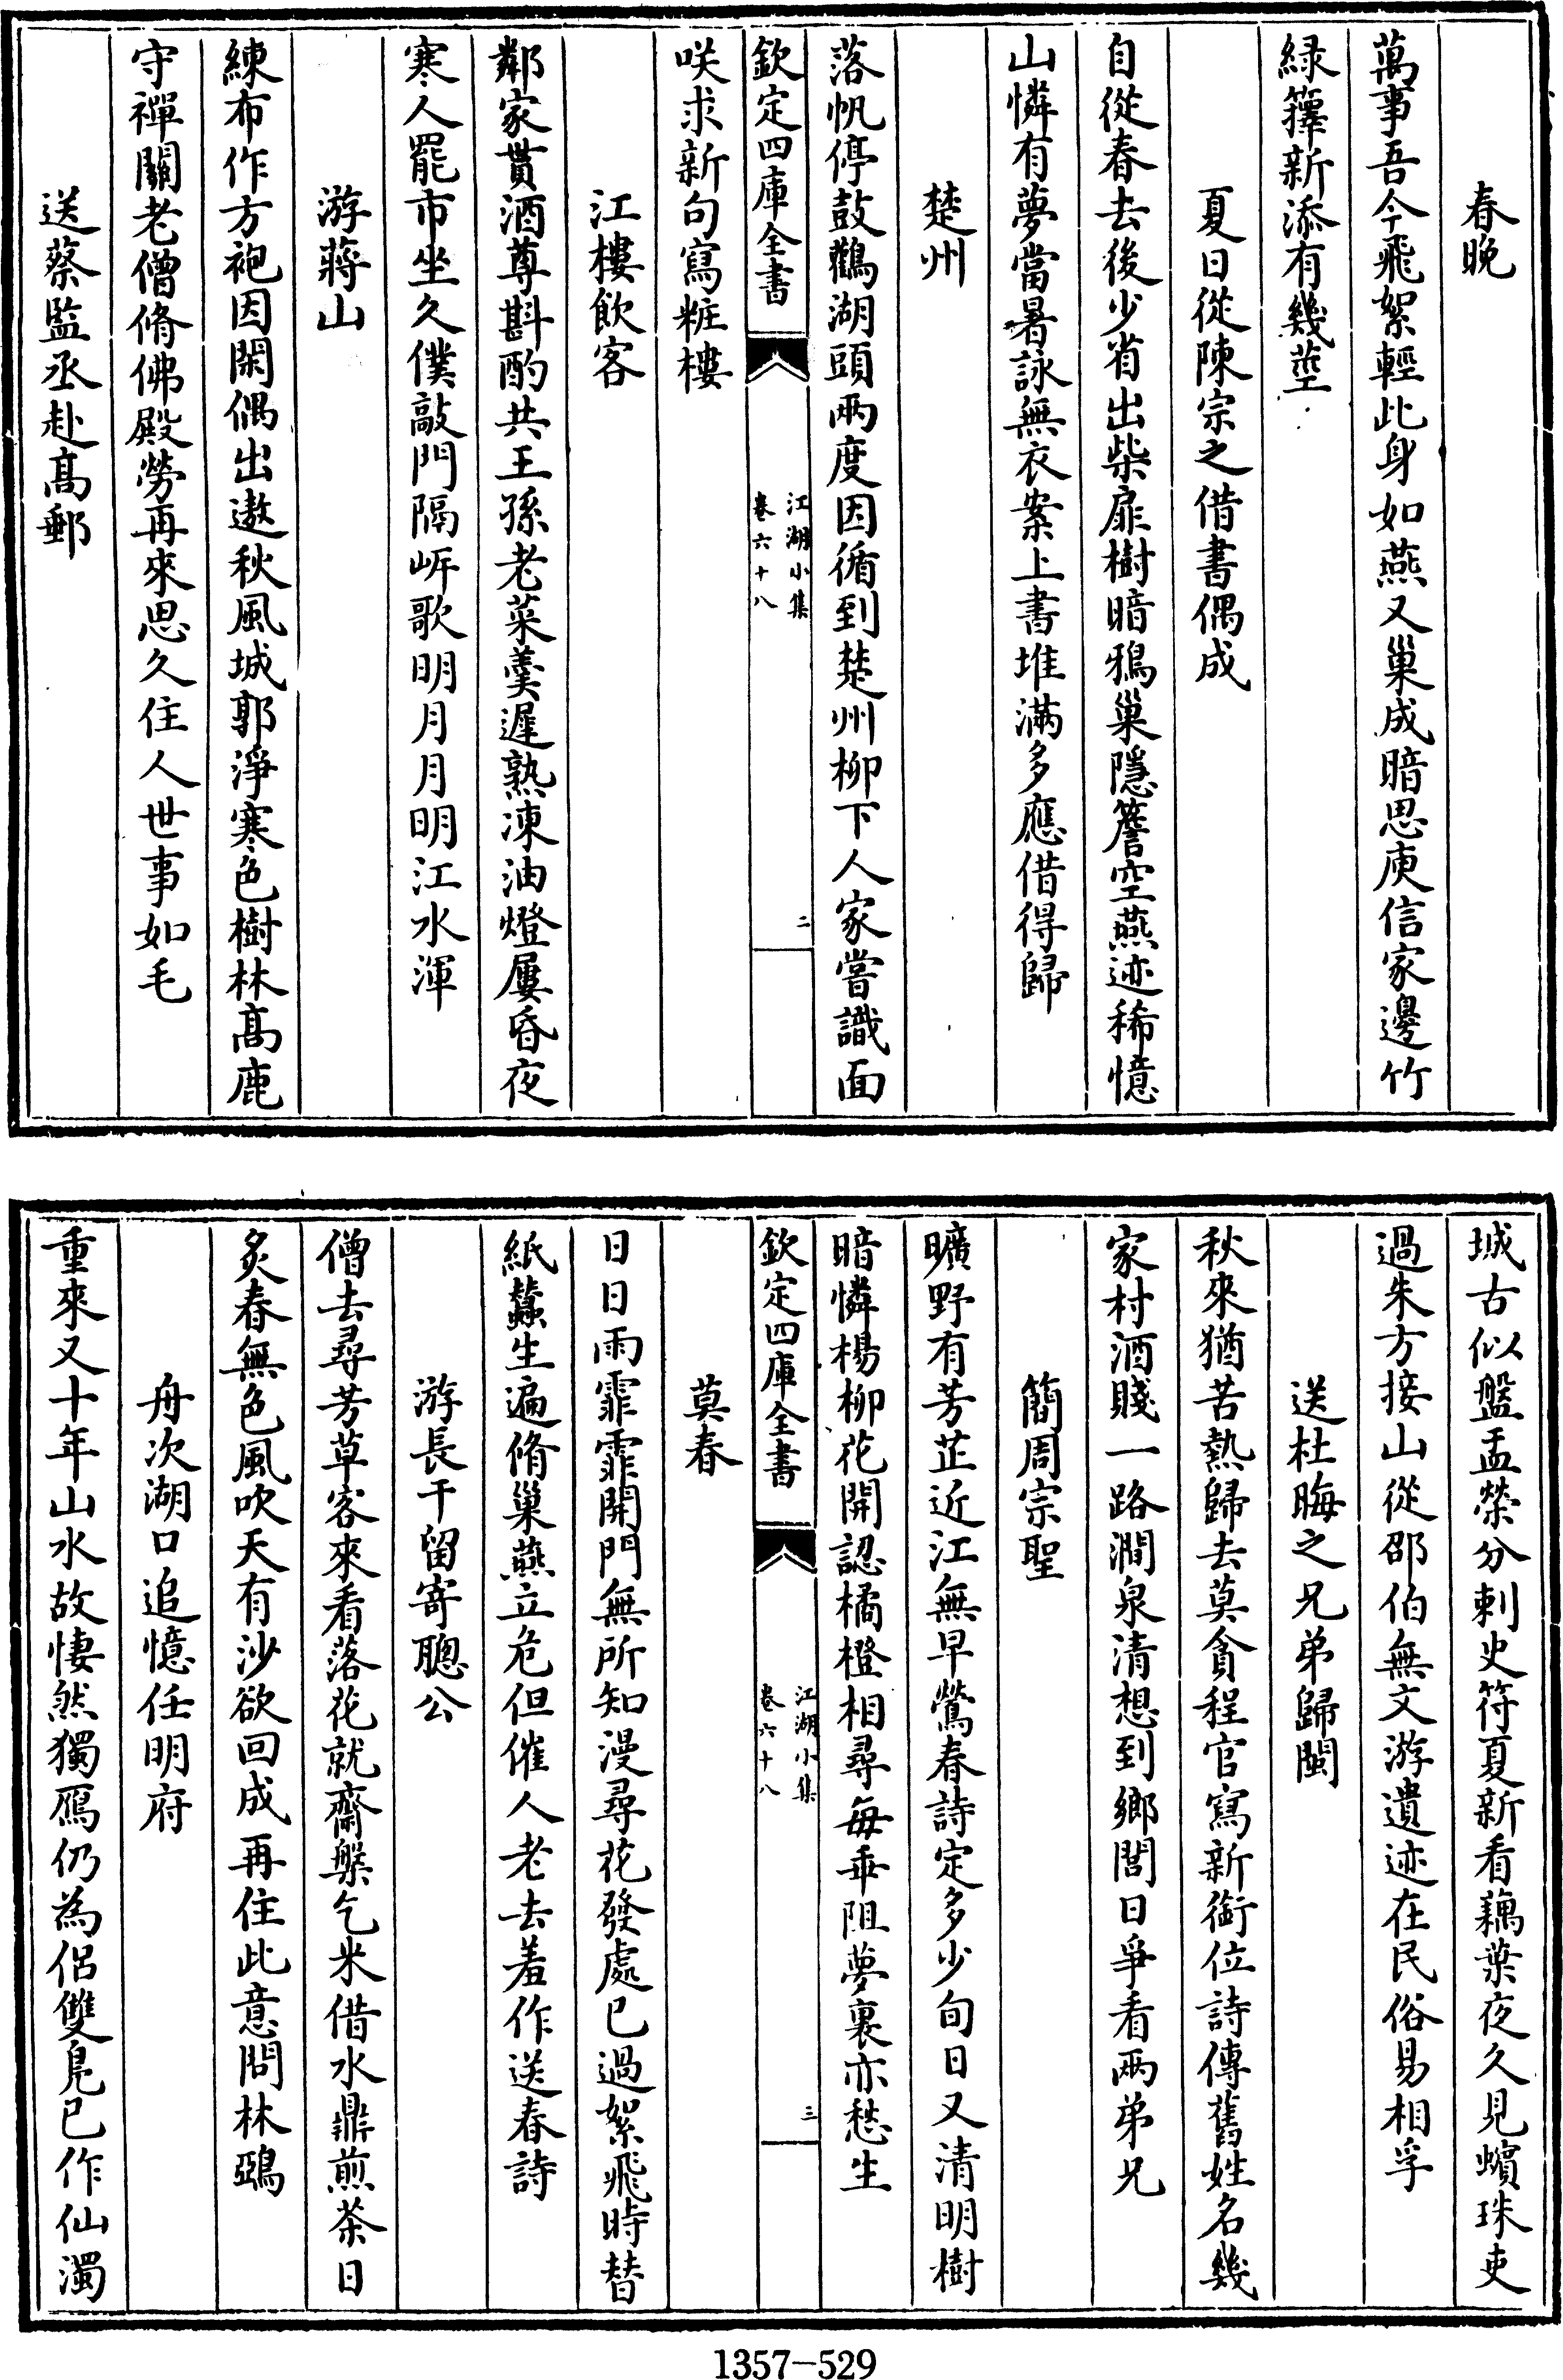 春晚
萬事吾今飛絮輕此身如燕又巢成暗思庾信家邊竹
緑籜新添有幾莖
夏日從陳宗之借書偶成
自從春去後少省出柴扉樹暗鴉巢隱簷空燕迹稀憶
山憐有夢當暑詠無衣案上書堆滿多應借得歸
楚州
落帆停鼓鸛湖頭兩度因循到楚州柳下人家嘗識面
欽定四庫全書
江湖小集
卷六十八
二
咲求新句寫粧樓
江樓飲客
鄰家貰酒尊斟酌共王孫老菜羹遲熟凍油燈屢昏夜
寒人罷市坐久僕敲門隔岍歌明月月明江水渾
游蔣山
練布作方袍因閑偶出遨秋風城郭淨寒色樹林髙鹿
守禪關老僧脩佛殿勞再來思久住人世事如毛
送蔡監丞赴髙郵
城古似盤盂榮分刺史符夏新看藕葉夜久見蠙珠吏
過朱方接山從邵伯無文游遺迹在民俗易相孚
送杜晦之兄弟歸閩
秋來猶苦熱歸去莫貪程官寫新銜位詩傳舊姓名幾
家村酒賤一路澗泉清想到鄉閭日爭看兩弟兄
簡周宗聖
曠野有芳芷近江無早鶯春詩定多少旬日又清明樹
暗憐楊柳花開認橘橙相尋每乖阻夢裏亦愁生
欽定四庫全書
江湖小集
卷六十八
三
莫春
日日雨霏霏開門無所知漫尋花發處已過絮飛時替
紙蠶生遍脩巢燕立危但催人老去羞作送春詩
游長干留寄聰公
僧去尋芳草客來看落花就齋槃乞米借水鼎煎茶日
炙春無色風吹天有沙欲回成再住此意問林鵶
舟次湖口追憶任明府
重來又十年山水故悽然獨鴈仍為侶雙鳬已作仙濁
1357-529